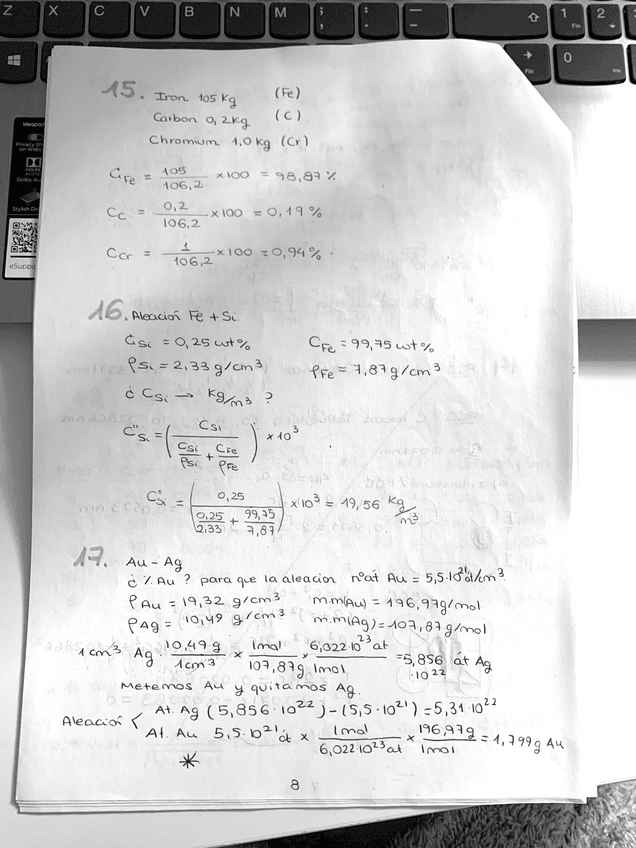 Z X C V B N M ; : _ ⇧ 1 2
Fin
Fin 0 Ins
15. Iron 105 Kg (Fe)
Carbon 0,2kg (C)
Chromium 1,0 kg (Cr)
C_Fe = 105/106,2 × 100 = 98,87 %
C_C = 0,2/106,2 × 100 = 0,19 %
C_Cr = 1/106,2 × 100 = 0,94 %.
16. Aleación Fe + Si.
C_Si = 0,25 wt% C_Fe = 99,75 wt%
ρ_Si = 2,33 g/cm³ ρ_Fe = 7,87 g/cm³
¿ C_Si → Kg/m³ ?
C''_Si = (C_Si / (C_Si/ρ_Si + C_Fe/ρ_Fe)) × 10³
C''_Si = (0,25 / (0,25/2,33 + 99,75/7,87)) × 10³ = 19,56 Kg/m³
17. Au - Ag
¿ % Au ? para que la aleacion nºát Au = 5,5·10²¹ át/cm³.
ρ_Au = 19,32 g/cm³ m.m(Au) = 196,97g/mol
ρ_Ag = 10,49 g/cm³ m.m(Ag) = 107,87 g/mol
1 cm³ Ag · 10,49 g/1 cm³ × 1mol/107,87g × 6,022·10²³ at/1mol = 5,856 ·10²² át Ag
Metemos Au y quitamos Ag.
Aleación < At. Ag (5,856·10²²) - (5,5·10²¹) = 5,31·10²²
At. Au 5,5·10²¹ át × 1mol/6,022·10²³ at × 196,97g/1mol = 1,799g Au
*
8